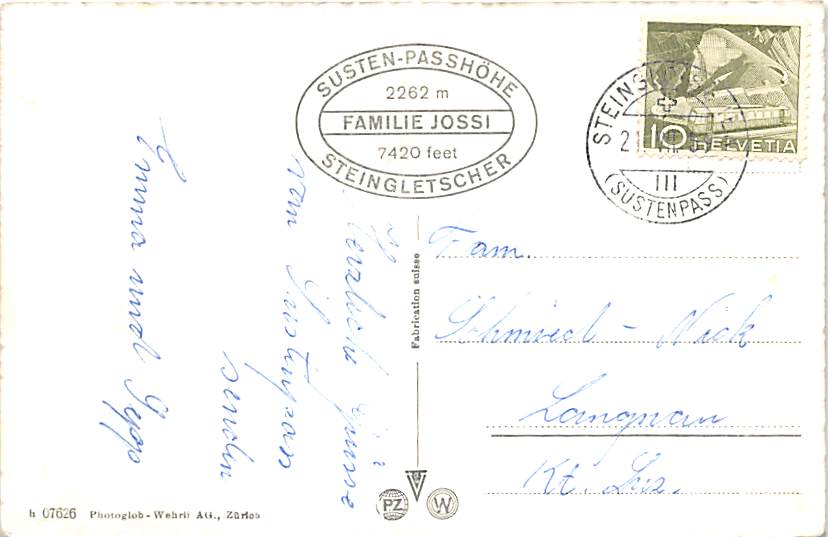 SUSTEN-PASSHÖHE
2262 m
FAMILIE JOSSI
7420 feet
STEINGLETSCHER
10 HELVETIA
III
(SUSTENPASS)
Herzliche Grüsse
vom Sustenpass
senden
Emma und Sepp
Fabrication suisse
Fam.
Schmied - Nick
Langnau
Kt. Luz.
PZ
W
h 07626 Photoglob-Wehrli AG., Zürich